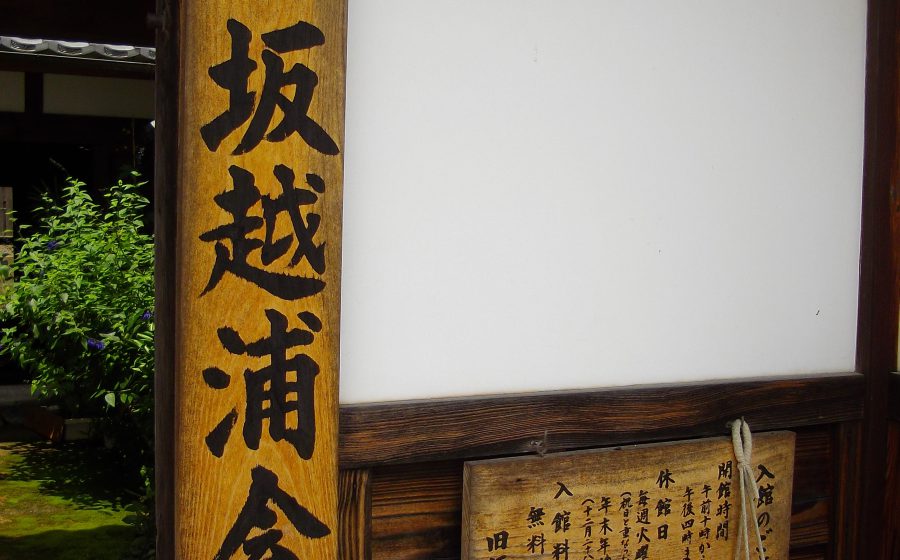 坂越浦会
入館のご
開館時間
午前十時か
午後四時ま
休館日
毎週火曜
(祝日と重なら
年末年
(十二月二
入館料
無料
旧